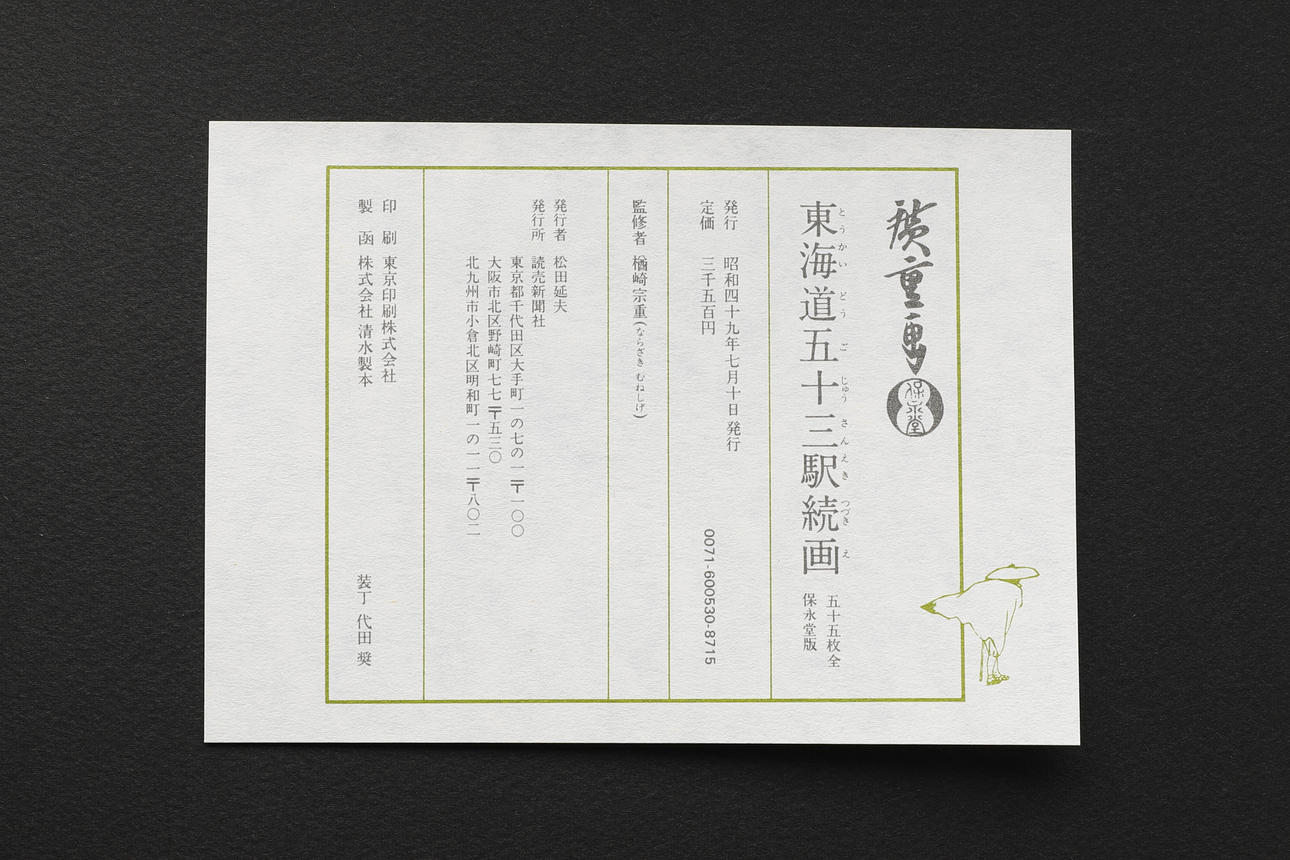 廣重画
保永堂
東海道五十三駅続画
とうかいどうごじゅうさんえきつづきえ
五十五枚全
保永堂版
発行 昭和四十九年七月十日 発行
定価 三千五百円
0071-600530-8715
監修者 楢崎宗重(ならざき むねしげ)
発行者 松田延夫
発行所 読売新聞社
東京都千代田区大手町一の七の一〒一〇〇
大阪市北区野崎町七七〒五三〇
北九州市小倉北区明和町一の一一〒八〇二
印刷 東京印刷株式会社
製函 株式会社 清水製本
装丁 代田 奨